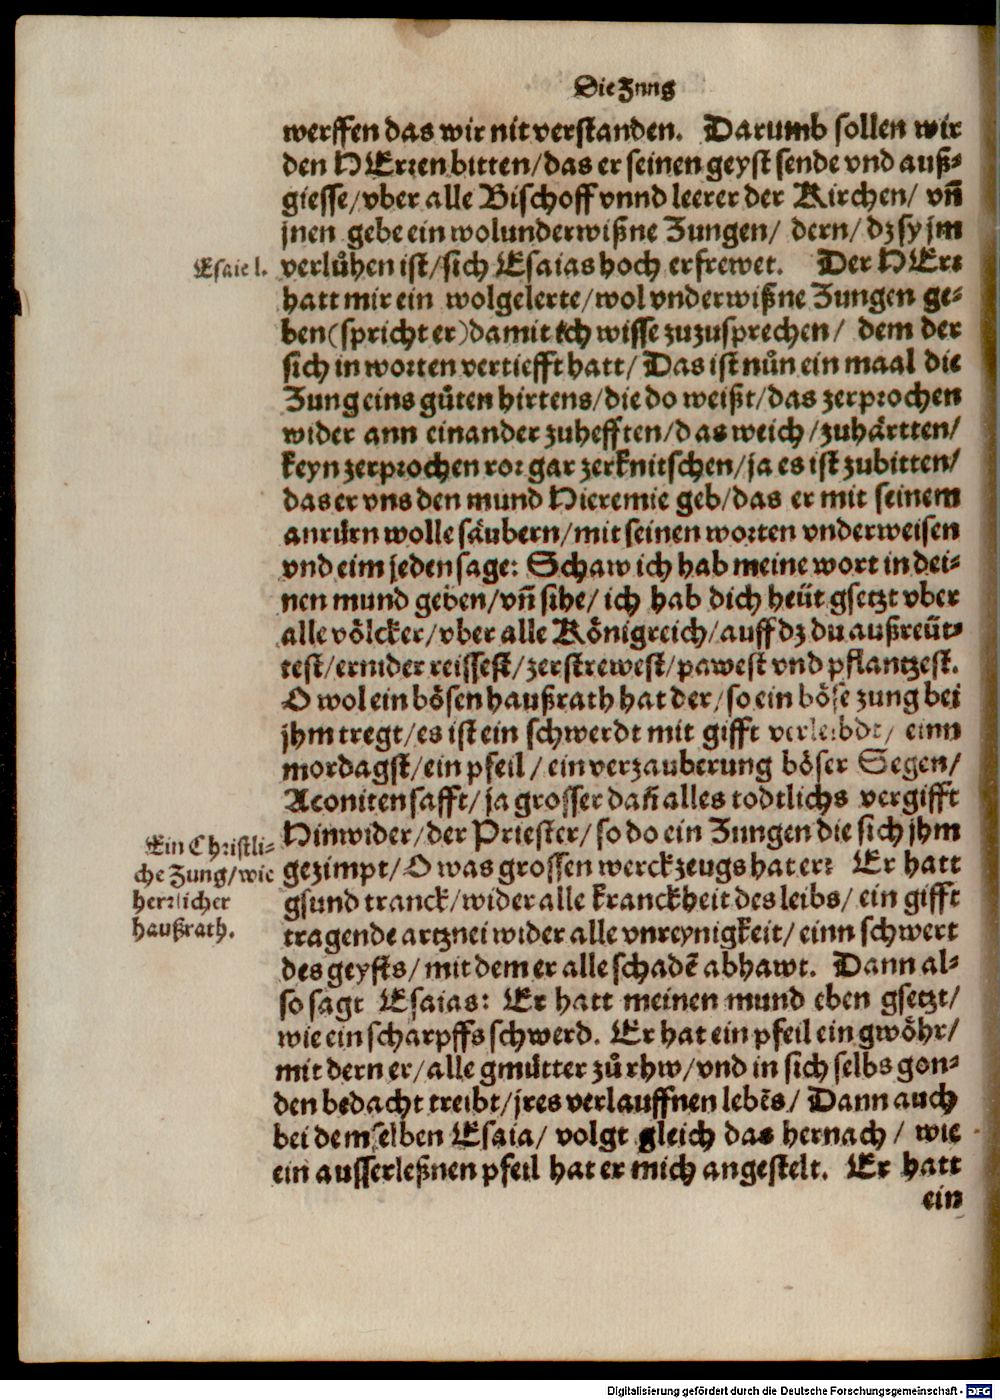 Die Znng
werffen das wir nit verstanden. Darumb sollen wir
den HErren bitten/das er seinen geyst sende vnd auß-
giesse/vber alle Bischoff vnnd leerer der Kirchen/ vñ
jnen gebe ein wolunderwißne Zungen/ dern/ dz sy jm
Esaie l.
verlůhen ist/sich Esaias hoch erfrewet. Der HErr
hatt mir ein wolgelerte/wol vnderwißne Zungen ge-
ben(spricht er)damit ich wisse zuzusprechen/ dem der
sich in worten vertiefft hatt/ Das ist nůn ein maal die
Zung eins gůten hirtens/die do weißt/das zerprochen
wider ann einander zuhefften/das weich/zuhärtten/
keyn zerprochen ror gar zerknitschen/ja es ist zubitten/
das er vns den mund Hieremie geb/das er mit seinem
anrürn wolle säubern/mit seinen worten vnderweisen
vnd eim jeden sage: Schaw ich hab meine wort in dei-
nen mund geben/vñ sihe/ ich hab dich heüt gsetzt vber
alle völcker/vber alle Königreich/auff dz du außreüt-
test/ernider reissest/zerstrewest/pawest vnd pflantzest.
O wol ein bösen haußrath hat der/so ein böse zung bei
jhm tregt/es ist ein schwerdt mit gifft verleibdt/ einn
mordagst/ein pfeil/ein verzauberung böser Segen/
Aconitensafft/ja grosser dañ alles todtlichs vergifft
Ein Christli-
che Zung/wie
herrlicher
haußrath.
Hinwider/der Priester/so do ein Zungen die sich jhm
gezimpt/O was grossen werckzeugs hat er? Er hatt
gsund tranck/wider alle kranckheit des leibs/ ein gifft
tragende artznei wider alle vnreynigkeit/einn schwert
des geysts/mit dem er alle schadẽ abhawt. Dann al-
so sagt Esaias: Er hatt meinen mund eben gsetzt/
wie ein scharpffs schwerd. Er hat ein pfeil ein gwöhr/
mit dern er/alle gmütter zů rhw/vnd in sich selbs gon-
den bedacht treibt/jres verlauffnen lebẽs/ Dann auch
bei demselben Esaia/ volgt gleich das hernach/ wie
ein ausserleßnen pfeil hat er mich angestelt. Er hatt
ein
Digitalisierung gefördert durch die Deutsche Forschungsgemeinschaft - DFG